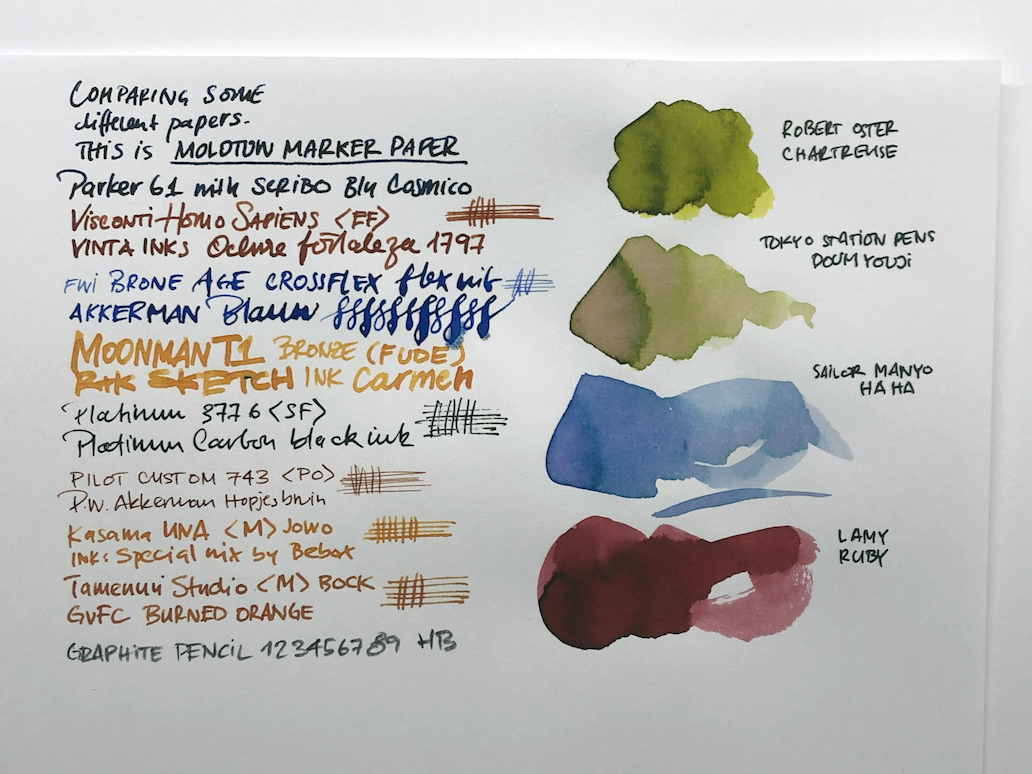 COMPARING SOME
different papers.
THIS is MOLOTOW MARKER PAPER
Parker 61 with SCRIBO Blu Cosmico
VISCONTI HOMO SAPIENS <EF>
VINTA INKS Ochre fortaleza 1797
FWI BRONE AGE CROSSFLEX flex nib
AKKERMAN Blauw
MOONMAN T1 BRONZE (FUDE)
R&K SKETCH INK Carmen
Platinum 3776 <SF>
Platinum Carbon black ink
PILOT CUSTOM 743 <PO>
P.W. Akkerman Hopjesbruin
Kasama UNA <M> Jowo
INK: Special mix by Bebox
Tamenuri Studio <M> BOCK
GvFC BURNED ORANGE
GRAPHITE PENCIL 123456789 HB
ROBERT OSTER
CHARTREUSE
TOKYO STATION PENS
DOUMYOUJI
SAILOR MANYO
HA HA
LAMY
RUBY